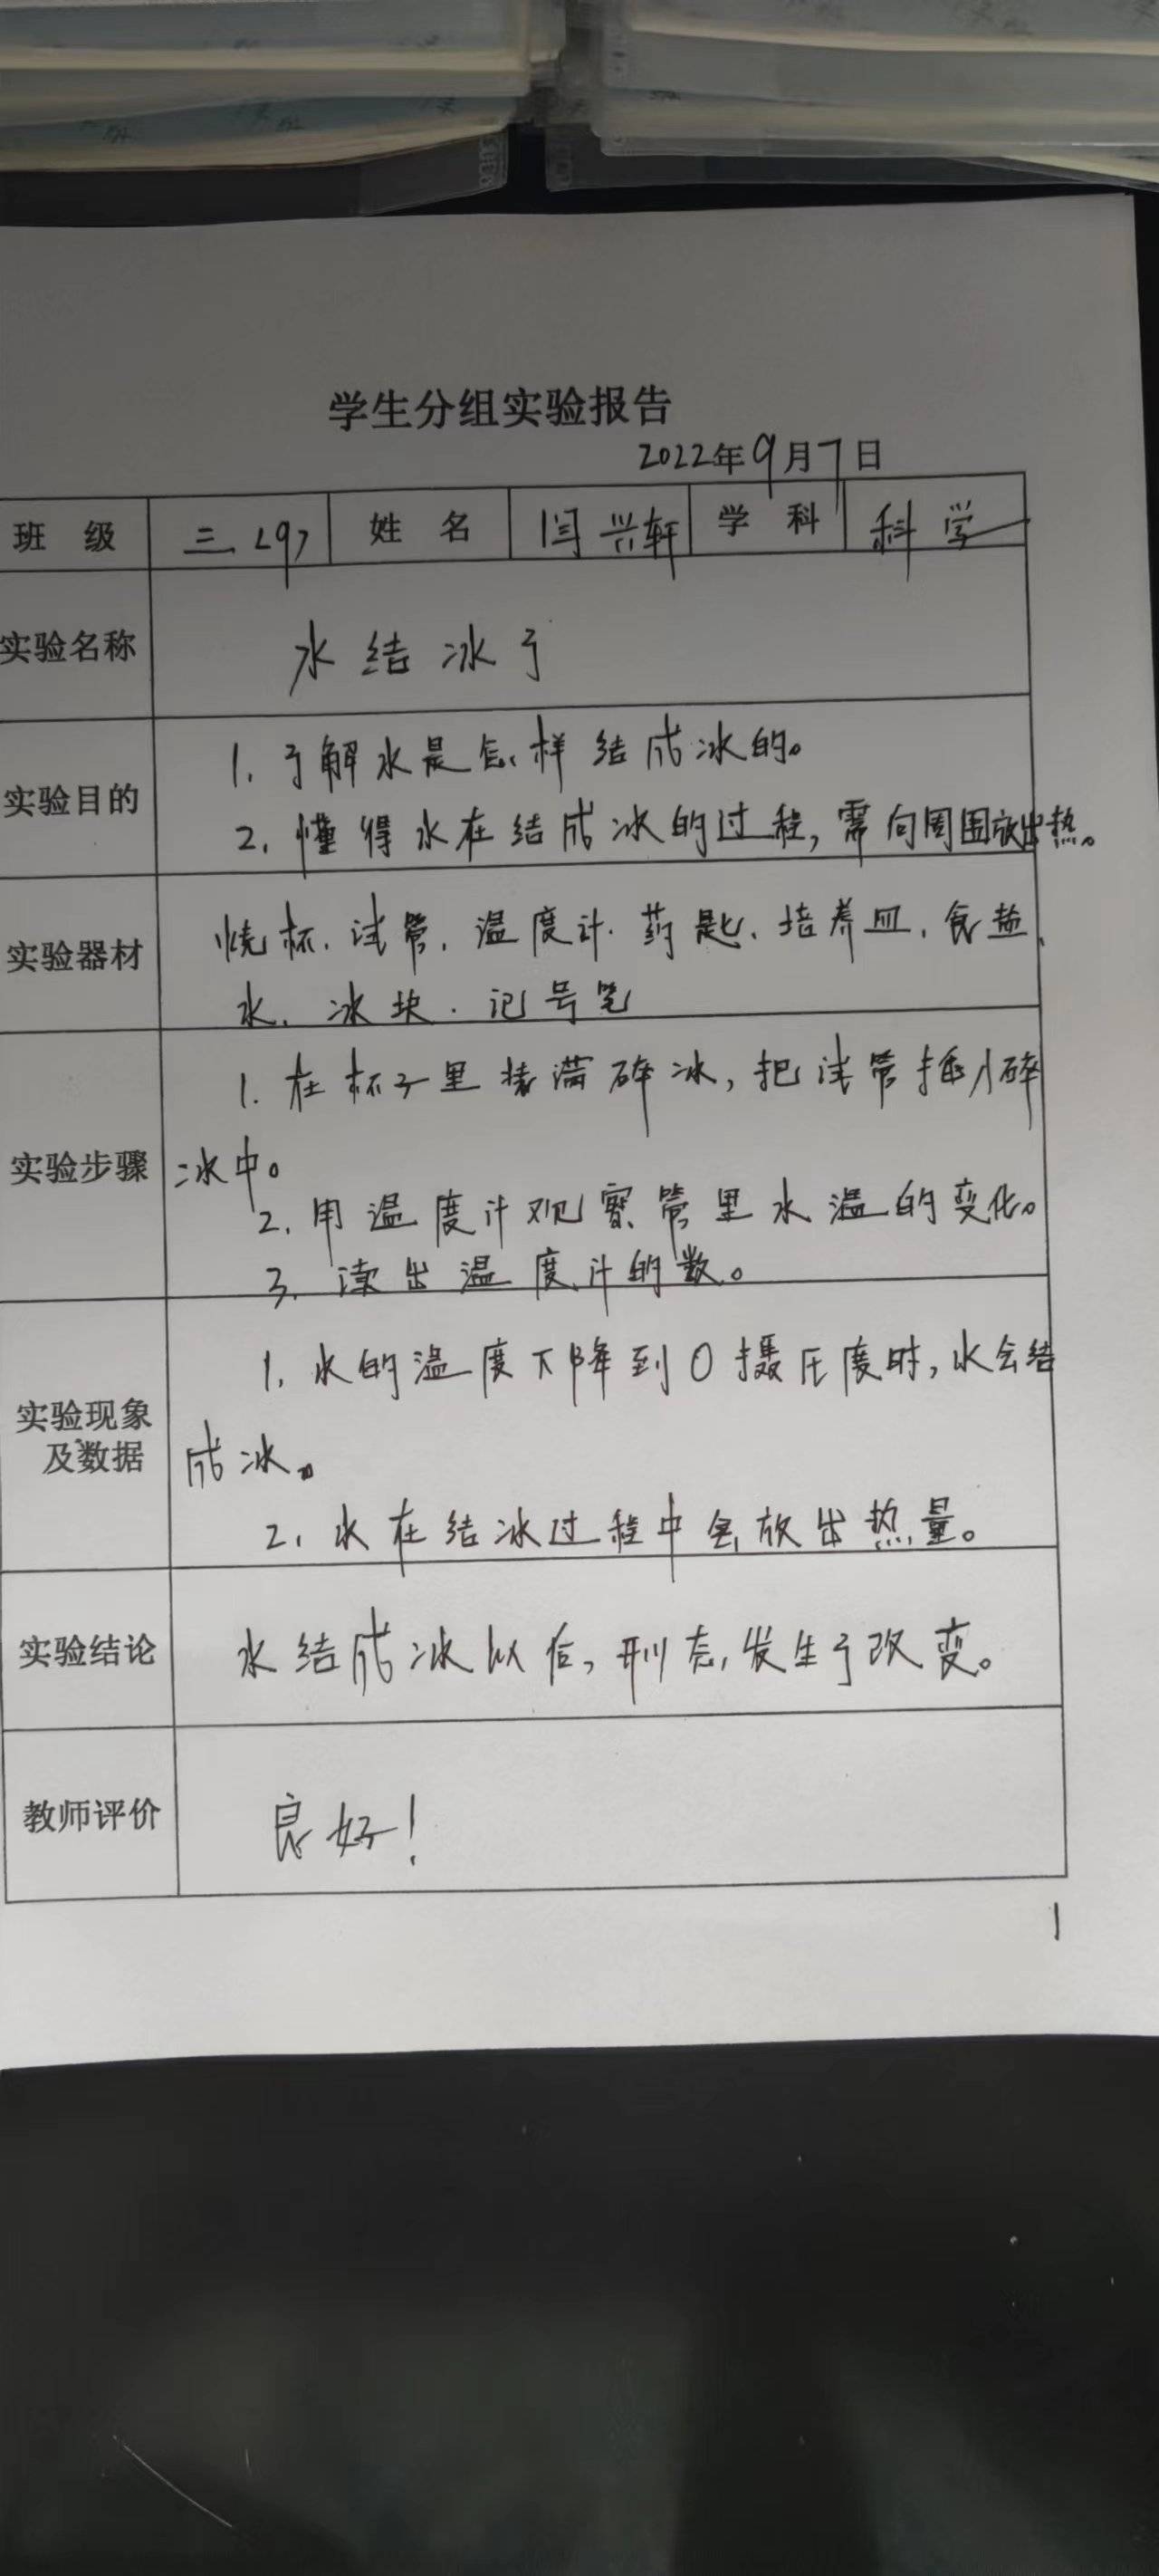 学生分组实验报告
2022年9月7日
班 级 三.(9) 姓 名 闫兴轩 学 科 科学
实验名称 水结冰了
实验目的 1. 了解水是怎样结成冰的。
2. 懂得水在结成冰的过程,需向周围放出热。
实验器材 烧杯、试管、温度计、药匙、培养皿、食盐、
水、冰块、记号笔
实验步骤 1. 在杯子里装满碎冰,把试管插入碎
冰中。
2. 用温度计观察管里水温的变化。
3. 读出温度计的数。
实验现象
及数据
1. 水的温度下降到0摄氏度时,水会结
成冰。
2. 水在结冰过程中会放出热量。
实验结论 水结成冰以后,形态发生了改变。
教师评价 良好!
1